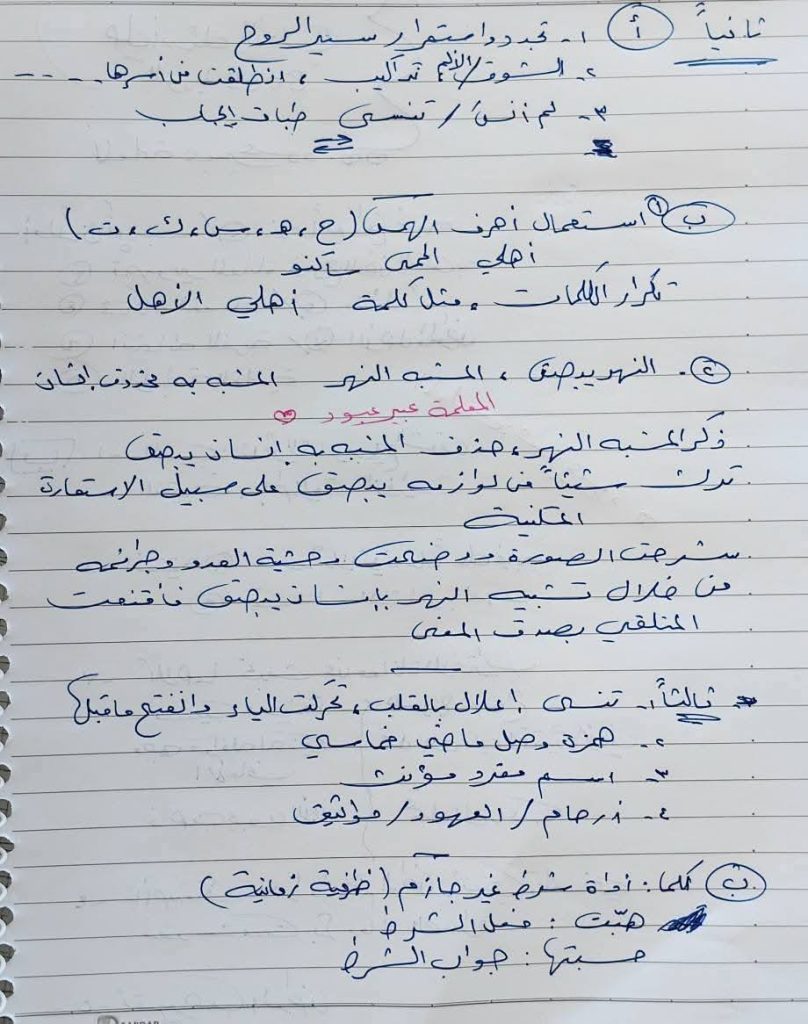 ثانياً أ ١- تجدد واستمرار سير الروح
٢- الشوق/الألم تراكيب، انطلقت من أسرها.....
٣- لم أنسَ/ تنسى طباق إيجاب
ب ١ استعمال أحرف الهمس (ح، هـ، س، ك، ت)
أهلي الحمى ساكنو
تكرار الكلمات، مثل كلمة أهلي الأهل
٢- النهر يبصق، المشبه النهر المشبه به محذوف إنسان
المعلمة عبير عبود
ذكر المشبه النهر، حذف المشبه به إنسان يبصق
ترك شيئاً من لوازمه يبصق على سبيل الاستعارة
المكنية
شرحت الصورة ووضحت وحشية العدو وجرائمه
من خلال تشبيه النهر بإنسان يبصق فأقنعت
المتلقي بصدق المعنى
ثالثاً ١- تنسى إعلال بالقلب، تحركت الياء وانفتح ماقبلها
٢- همزة وصل ماضي خماسي
٣- اسم مفرد مؤنث
٤- أرحام/ العهود/ مواثيق
ب كلما: أداة شرط غير جازم (ظرفية زمانية)
هبّت: فعل الشرط
حسبتها: جواب الشرط